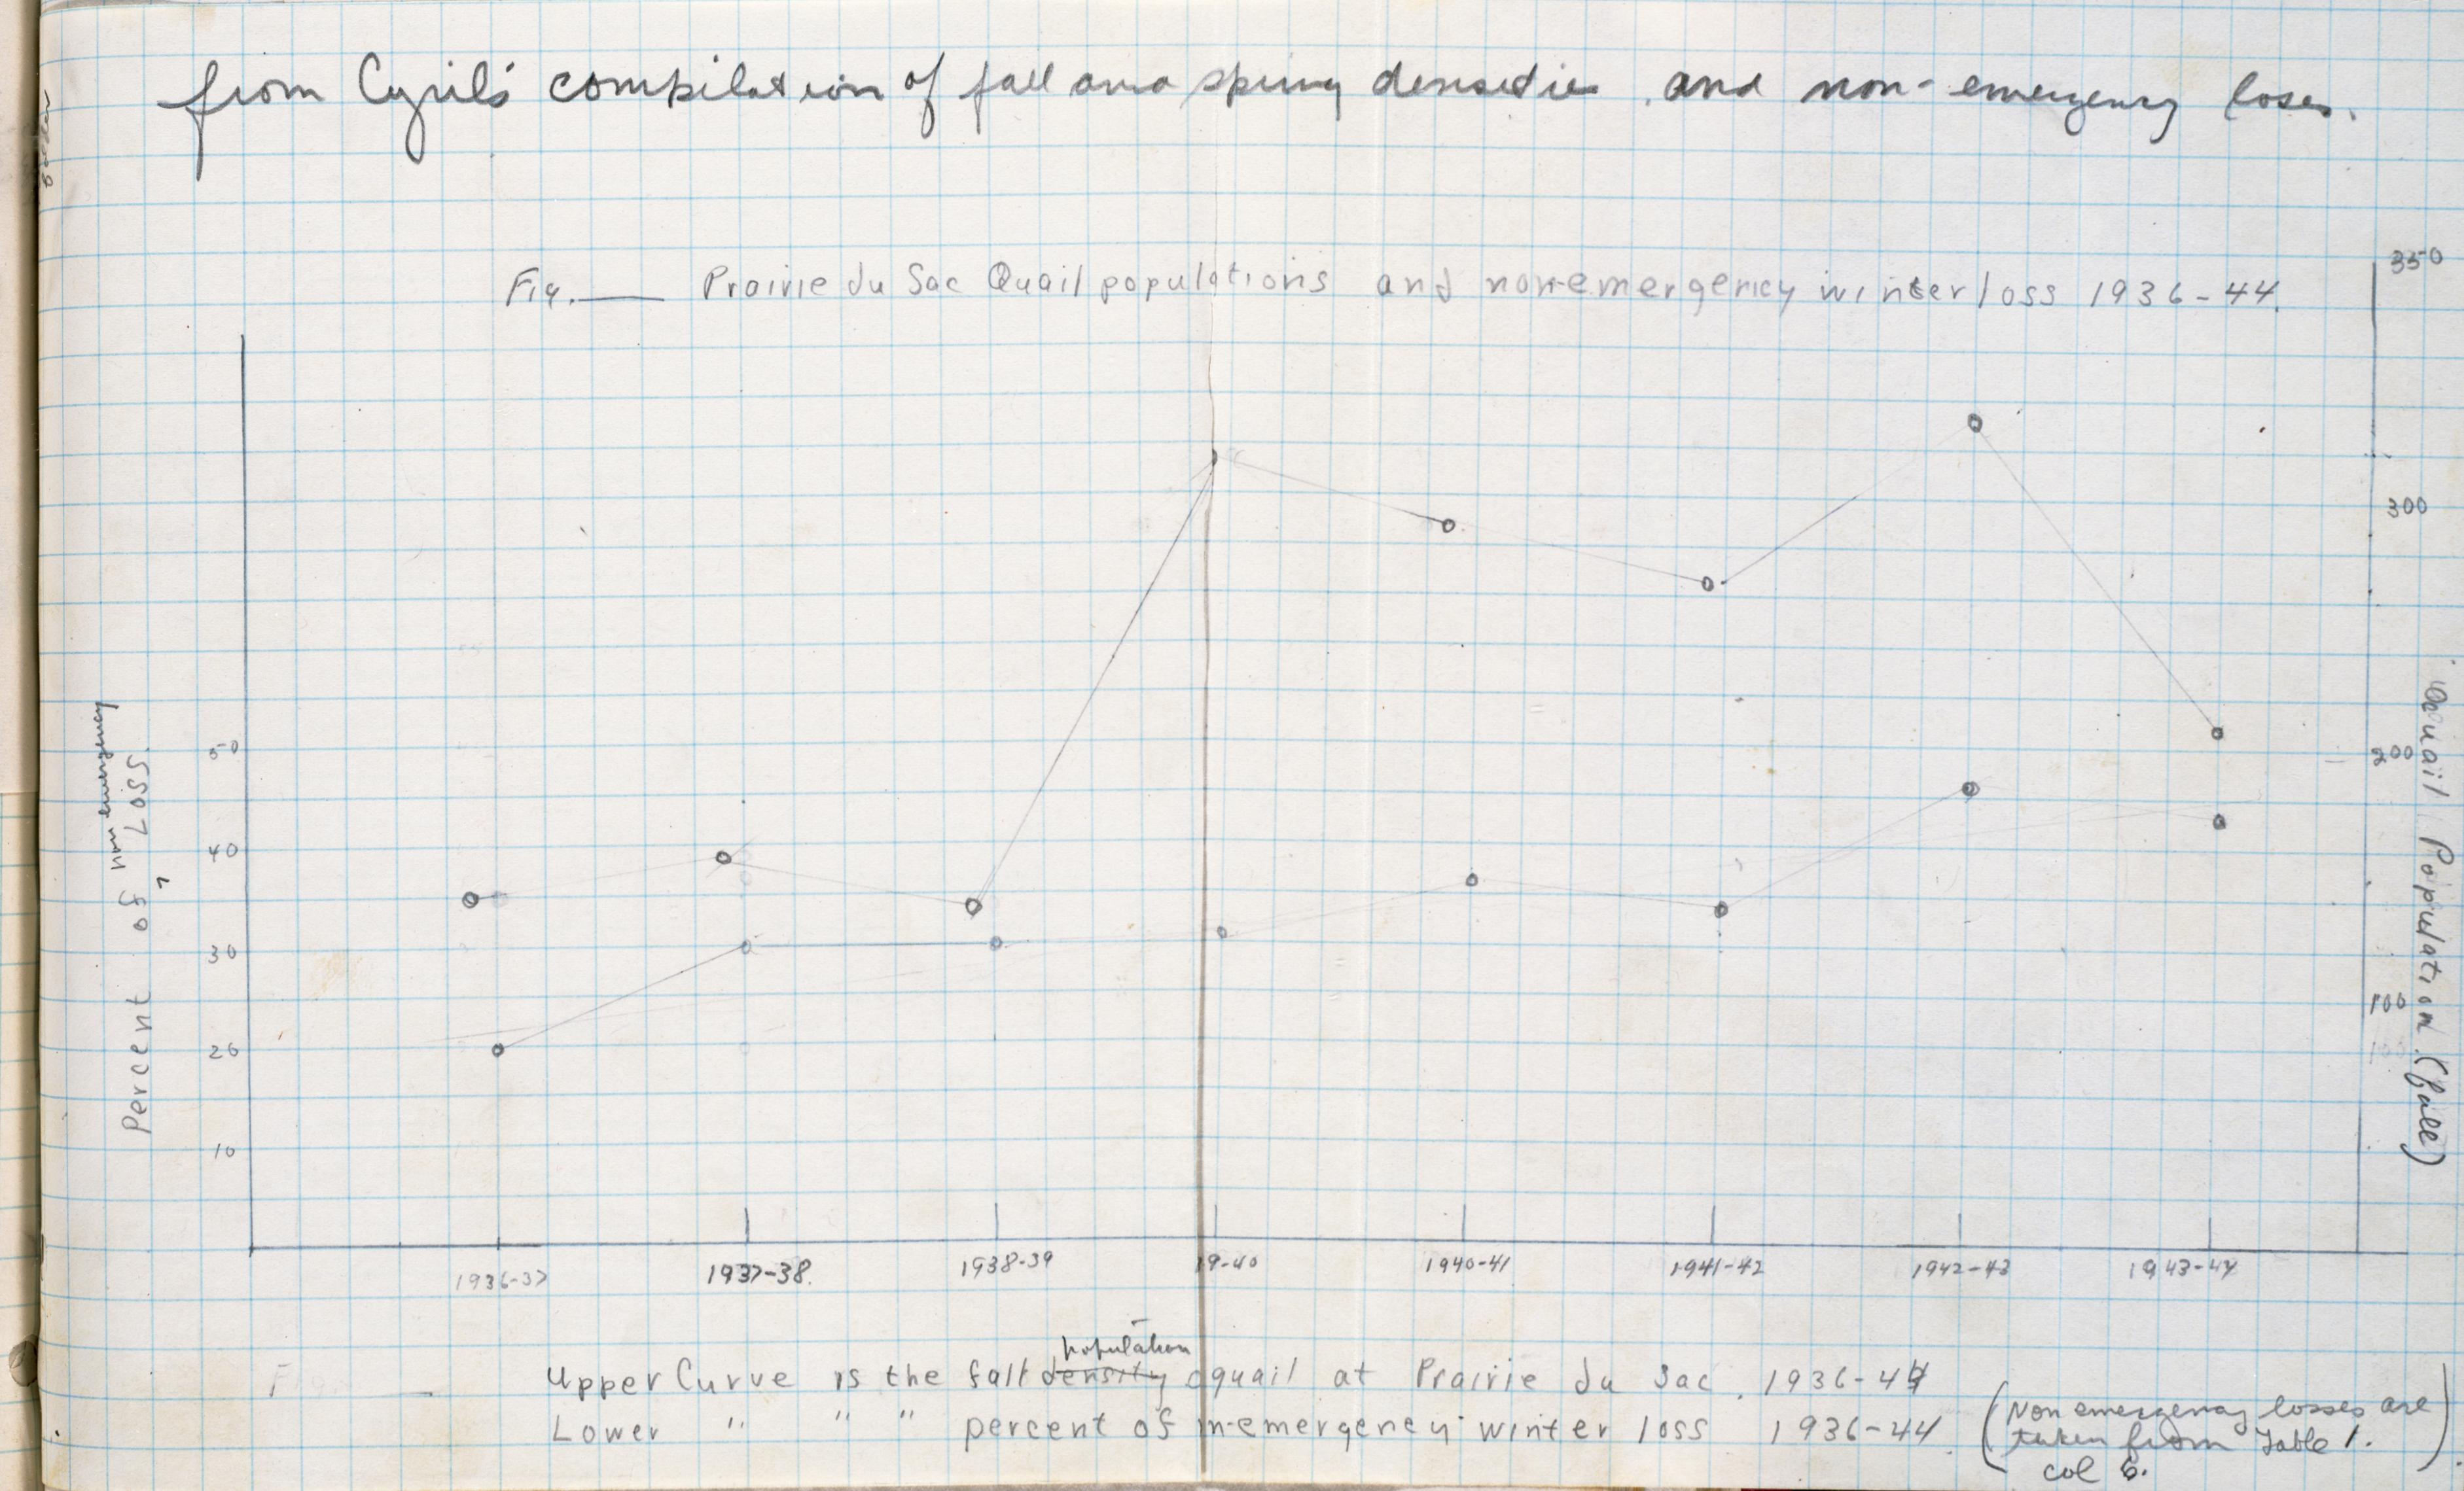 from Cyril's compilation of fall and spring densities and non-emergency loses.
Fig. ___ Prairie du Sac Quail populations and non-emergency winter loss 1936-44.
350
300
200
100
Quail Population (fall)
50
40
30
20
10
Percent of non emergency Loss.
1936-37
1937-38.
1938-39
19-40
1940-41
1941-42
1942-43
1943-44
Upper Curve is the fall density population quail at Prairie du Sac. 1936-44
Lower " " " percent of n-emergency winter loss 1936-44
(Non emergency losses are
taken from Table 1.
col 6.)